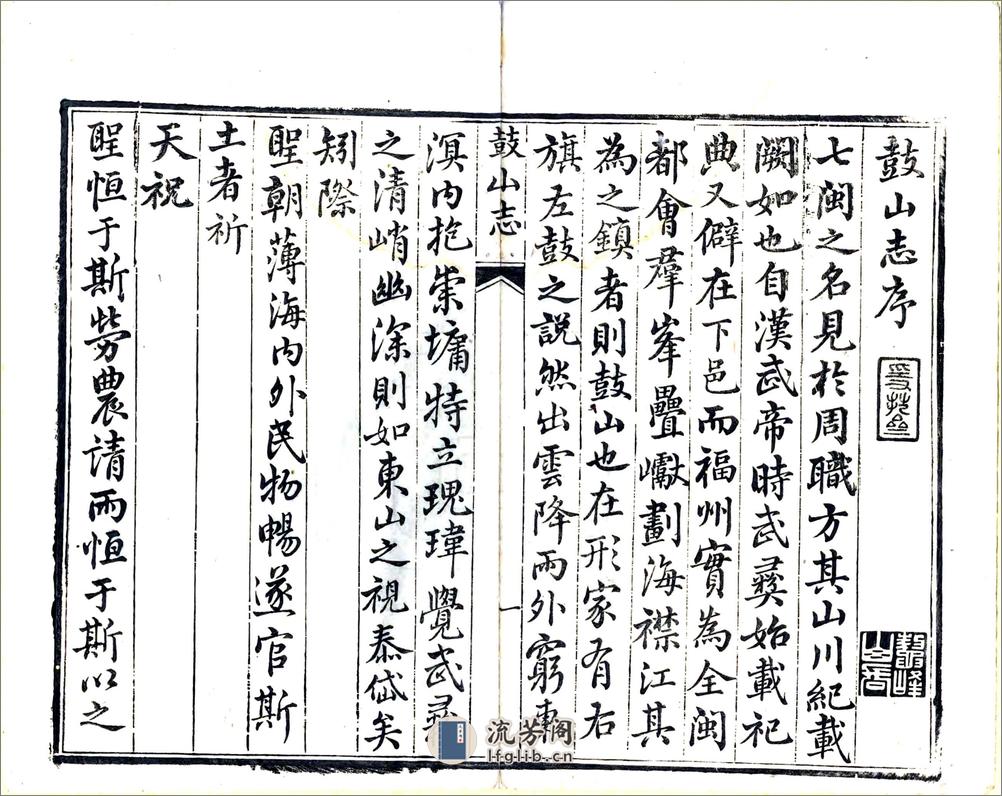 鼓山志序
七閩之名見於周職方其山川紀載
闕如也自漢武帝時武彛始載祀
典又僻在下邑而福州實為全閩
都會羣峯疊巘劃海襟江其
為之鎮者則鼓山也在形家有右
旗左鼓之説然出雲降雨外窮東
鼓山志
一
溟内抱崇墉特立瑰瑋覺武彛
之清峭幽深則如東山之視泰岱矣
矧際
聖朝薄海内外民物暢遂官斯
土者祈
天祝
聖恒于斯勞農請雨恒于斯以之
流芳閣
lfglib.cn